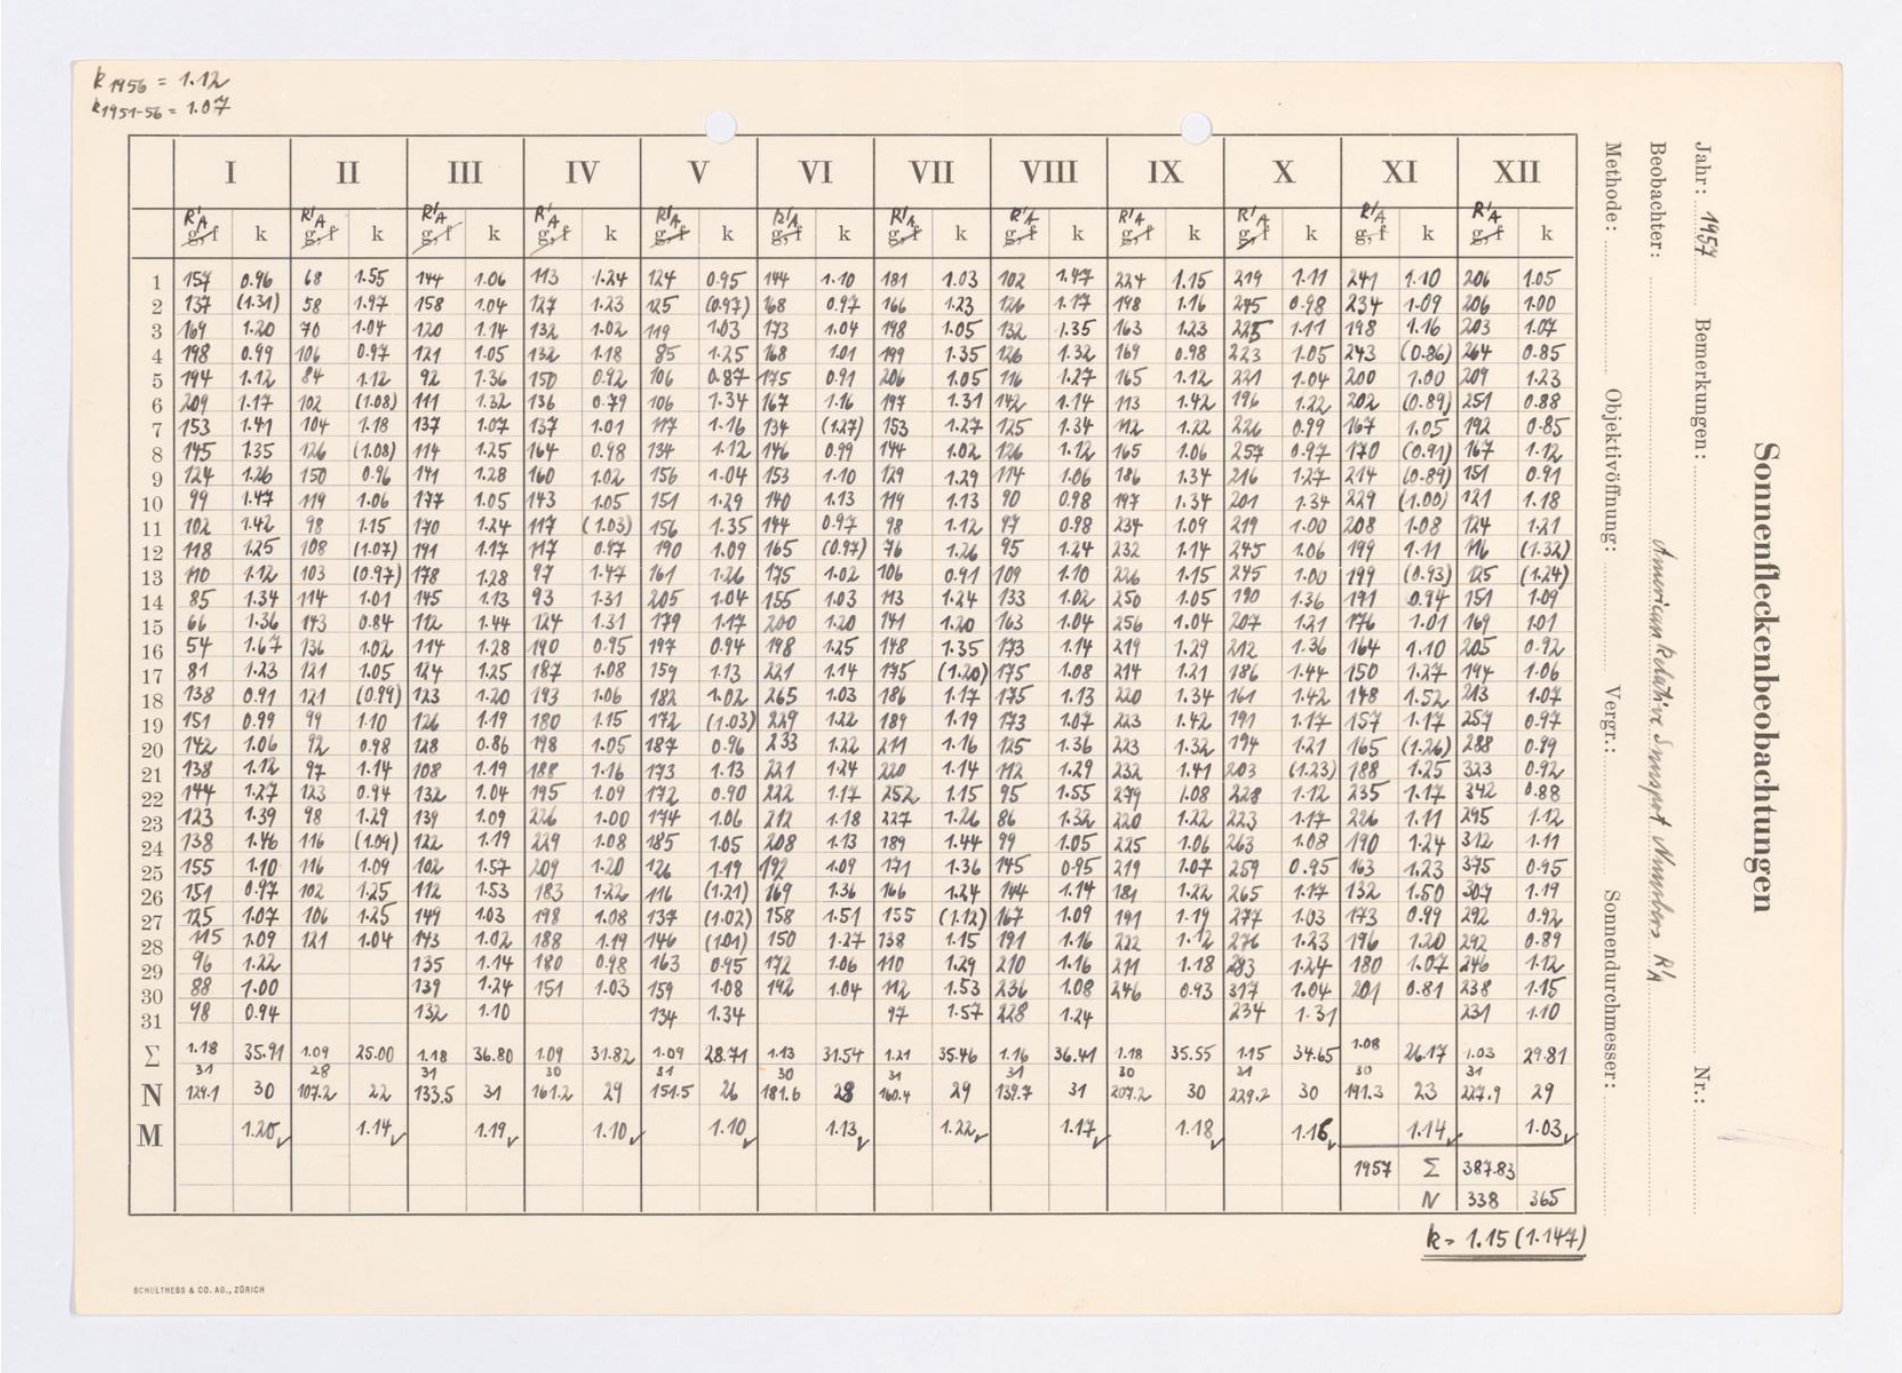 k 1956 = 1.12
k 1951-56 = 1.07
I II III IV V VI VII VIII IX X XI XII
R'A R'A R'A R'A R'A R'A R'A R'A R'A R'A R'A R'A
g, f k g, f k g, f k g, f k g, f k g, f k g, f k g, f k g, f k g, f k g, f k g, f k
1 157 0.96 68 1.55 144 1.06 113 1.24 124 0.95 144 1.10 181 1.03 102 1.47 224 1.15 219 1.11 241 1.10 206 1.05
2 137 (1.31) 58 1.97 158 1.04 127 1.23 125 (0.97) 168 0.97 166 1.23 126 1.17 198 1.16 245 0.98 234 1.09 206 1.00
3 169 1.20 70 1.04 120 1.14 132 1.02 119 1.03 173 1.04 198 1.05 132 1.35 163 1.23 225 1.11 198 1.16 203 1.07
4 198 0.99 106 0.97 121 1.05 132 1.18 85 1.25 168 1.01 199 1.35 126 1.32 169 0.98 223 1.05 243 (0.86) 264 0.85
5 194 1.12 84 1.12 92 1.36 150 0.92 106 0.87 175 0.91 206 1.05 116 1.27 165 1.12 221 1.04 200 1.00 209 1.23
6 209 1.17 102 (1.08) 111 1.32 136 0.79 106 1.34 167 1.16 197 1.31 142 1.14 113 1.42 196 1.22 202 (0.89) 251 0.88
7 153 1.41 104 1.18 137 1.07 137 1.01 117 1.16 134 (1.27) 153 1.27 125 1.34 112 1.22 226 0.99 167 1.05 192 0.85
8 145 1.35 126 (1.08) 114 1.25 164 0.98 134 1.12 146 0.99 144 1.02 126 1.12 165 1.06 257 0.97 170 (0.91) 167 1.12
9 124 1.26 150 0.96 141 1.28 160 1.02 156 1.04 153 1.10 129 1.29 114 1.06 186 1.34 216 1.27 214 (0.89) 151 0.91
10 99 1.47 119 1.06 177 1.05 143 1.05 151 1.29 140 1.13 119 1.13 90 0.98 197 1.34 201 1.34 229 (1.00) 121 1.18
11 102 1.42 98 1.15 170 1.24 117 (1.03) 156 1.35 144 0.97 98 1.12 97 0.98 234 1.09 219 1.00 208 1.08 124 1.21
12 118 1.25 108 (1.07) 191 1.17 117 0.97 190 1.09 165 (0.97) 76 1.26 95 1.24 232 1.14 245 1.06 199 1.11 116 (1.32)
13 110 1.12 103 (0.97) 178 1.28 97 1.47 161 1.26 175 1.02 106 0.91 109 1.10 226 1.15 245 1.00 199 (0.93) 125 (1.24)
14 85 1.34 114 1.01 145 1.13 93 1.31 205 1.04 155 1.03 113 1.24 133 1.02 250 1.05 190 1.36 191 0.94 151 1.09
15 66 1.36 143 0.84 112 1.44 124 1.31 179 1.17 200 1.20 141 1.20 163 1.04 256 1.04 207 1.21 176 1.01 169 1.01
16 54 1.67 136 1.02 114 1.28 190 0.95 197 0.94 198 1.25 148 1.35 173 1.14 219 1.29 212 1.36 164 1.10 205 0.92
17 81 1.23 121 1.05 124 1.25 187 1.08 159 1.13 221 1.14 175 (1.20) 175 1.08 214 1.21 186 1.44 150 1.27 194 1.06
18 138 0.91 121 (0.99) 123 1.20 193 1.06 182 1.02 265 1.03 186 1.17 175 1.13 220 1.34 161 1.42 148 1.52 213 1.07
19 151 0.99 99 1.10 126 1.19 180 1.15 172 (1.03) 229 1.22 189 1.19 173 1.07 223 1.42 191 1.17 157 1.17 257 0.97
20 142 1.06 92 0.98 128 0.86 198 1.05 187 0.96 233 1.22 211 1.16 125 1.36 223 1.32 194 1.21 165 (1.26) 288 0.99
21 138 1.12 97 1.14 108 1.19 188 1.16 173 1.13 221 1.24 220 1.14 112 1.29 232 1.41 203 (1.23) 188 1.25 323 0.92
22 144 1.27 123 0.94 132 1.04 195 1.09 172 0.90 222 1.17 252 1.15 95 1.55 279 1.08 228 1.12 235 1.17 342 0.88
23 123 1.39 98 1.29 139 1.09 226 1.00 174 1.06 212 1.18 227 1.26 86 1.32 220 1.22 223 1.17 226 1.11 295 1.12
24 138 1.46 116 (1.09) 122 1.19 229 1.08 185 1.05 208 1.13 189 1.44 99 1.05 225 1.06 263 1.08 190 1.24 312 1.11
25 155 1.10 116 1.09 102 1.57 209 1.20 126 1.19 192 1.09 171 1.36 145 0.95 219 1.07 259 0.95 163 1.23 375 0.95
26 151 0.97 102 1.25 112 1.53 183 1.22 116 (1.21) 169 1.36 166 1.24 144 1.14 181 1.22 265 1.17 132 1.50 307 1.19
27 125 1.07 106 1.25 149 1.03 198 1.08 137 (1.02) 158 1.51 155 (1.12) 167 1.09 191 1.19 277 1.03 173 0.99 292 0.92
28 115 1.09 121 1.04 143 1.02 188 1.19 146 (1.01) 150 1.27 138 1.15 191 1.16 222 1.12 276 1.23 196 1.20 292 0.89
29 96 1.22 135 1.14 180 0.98 163 0.95 172 1.06 110 1.29 210 1.16 211 1.18 283 1.24 180 1.07 246 1.12
30 88 1.00 139 1.24 151 1.03 159 1.08 192 1.04 112 1.53 236 1.08 246 0.93 317 1.04 201 0.81 238 1.15
31 98 0.94 132 1.10 134 1.34 97 1.57 228 1.24 234 1.31 231 1.10
Σ 1.18 35.91 1.09 25.00 1.18 36.80 1.09 31.82 1.09 28.71 1.13 31.54 1.21 35.46 1.16 36.41 1.18 35.55 1.15 34.65 1.08 26.17 1.03 29.81
31 28 31 30 31 30 31 31 30 31 30 31
N 129.1 30 107.2 22 133.5 31 161.2 29 151.5 26 181.6 28 160.4 29 139.7 31 207.2 30 229.2 30 191.3 23 227.9 29
M 1.20 1.14 1.19 1.10 1.10 1.13 1.22 1.17 1.18 1.16 1.14 1.03
1957 Σ 387.83
N 338 365
k = 1.15 (1.147)
SCHULTHESS & CO. AG., ZÜRICH
Sonnenfleckenbeobachtungen
Jahr: 1957 Bemerkungen: Nr.:
Beobachter: American Relative Sunspot Numbers R'A
Methode: Objektivöffnung: Vergr.: Sonnendurchmesser: